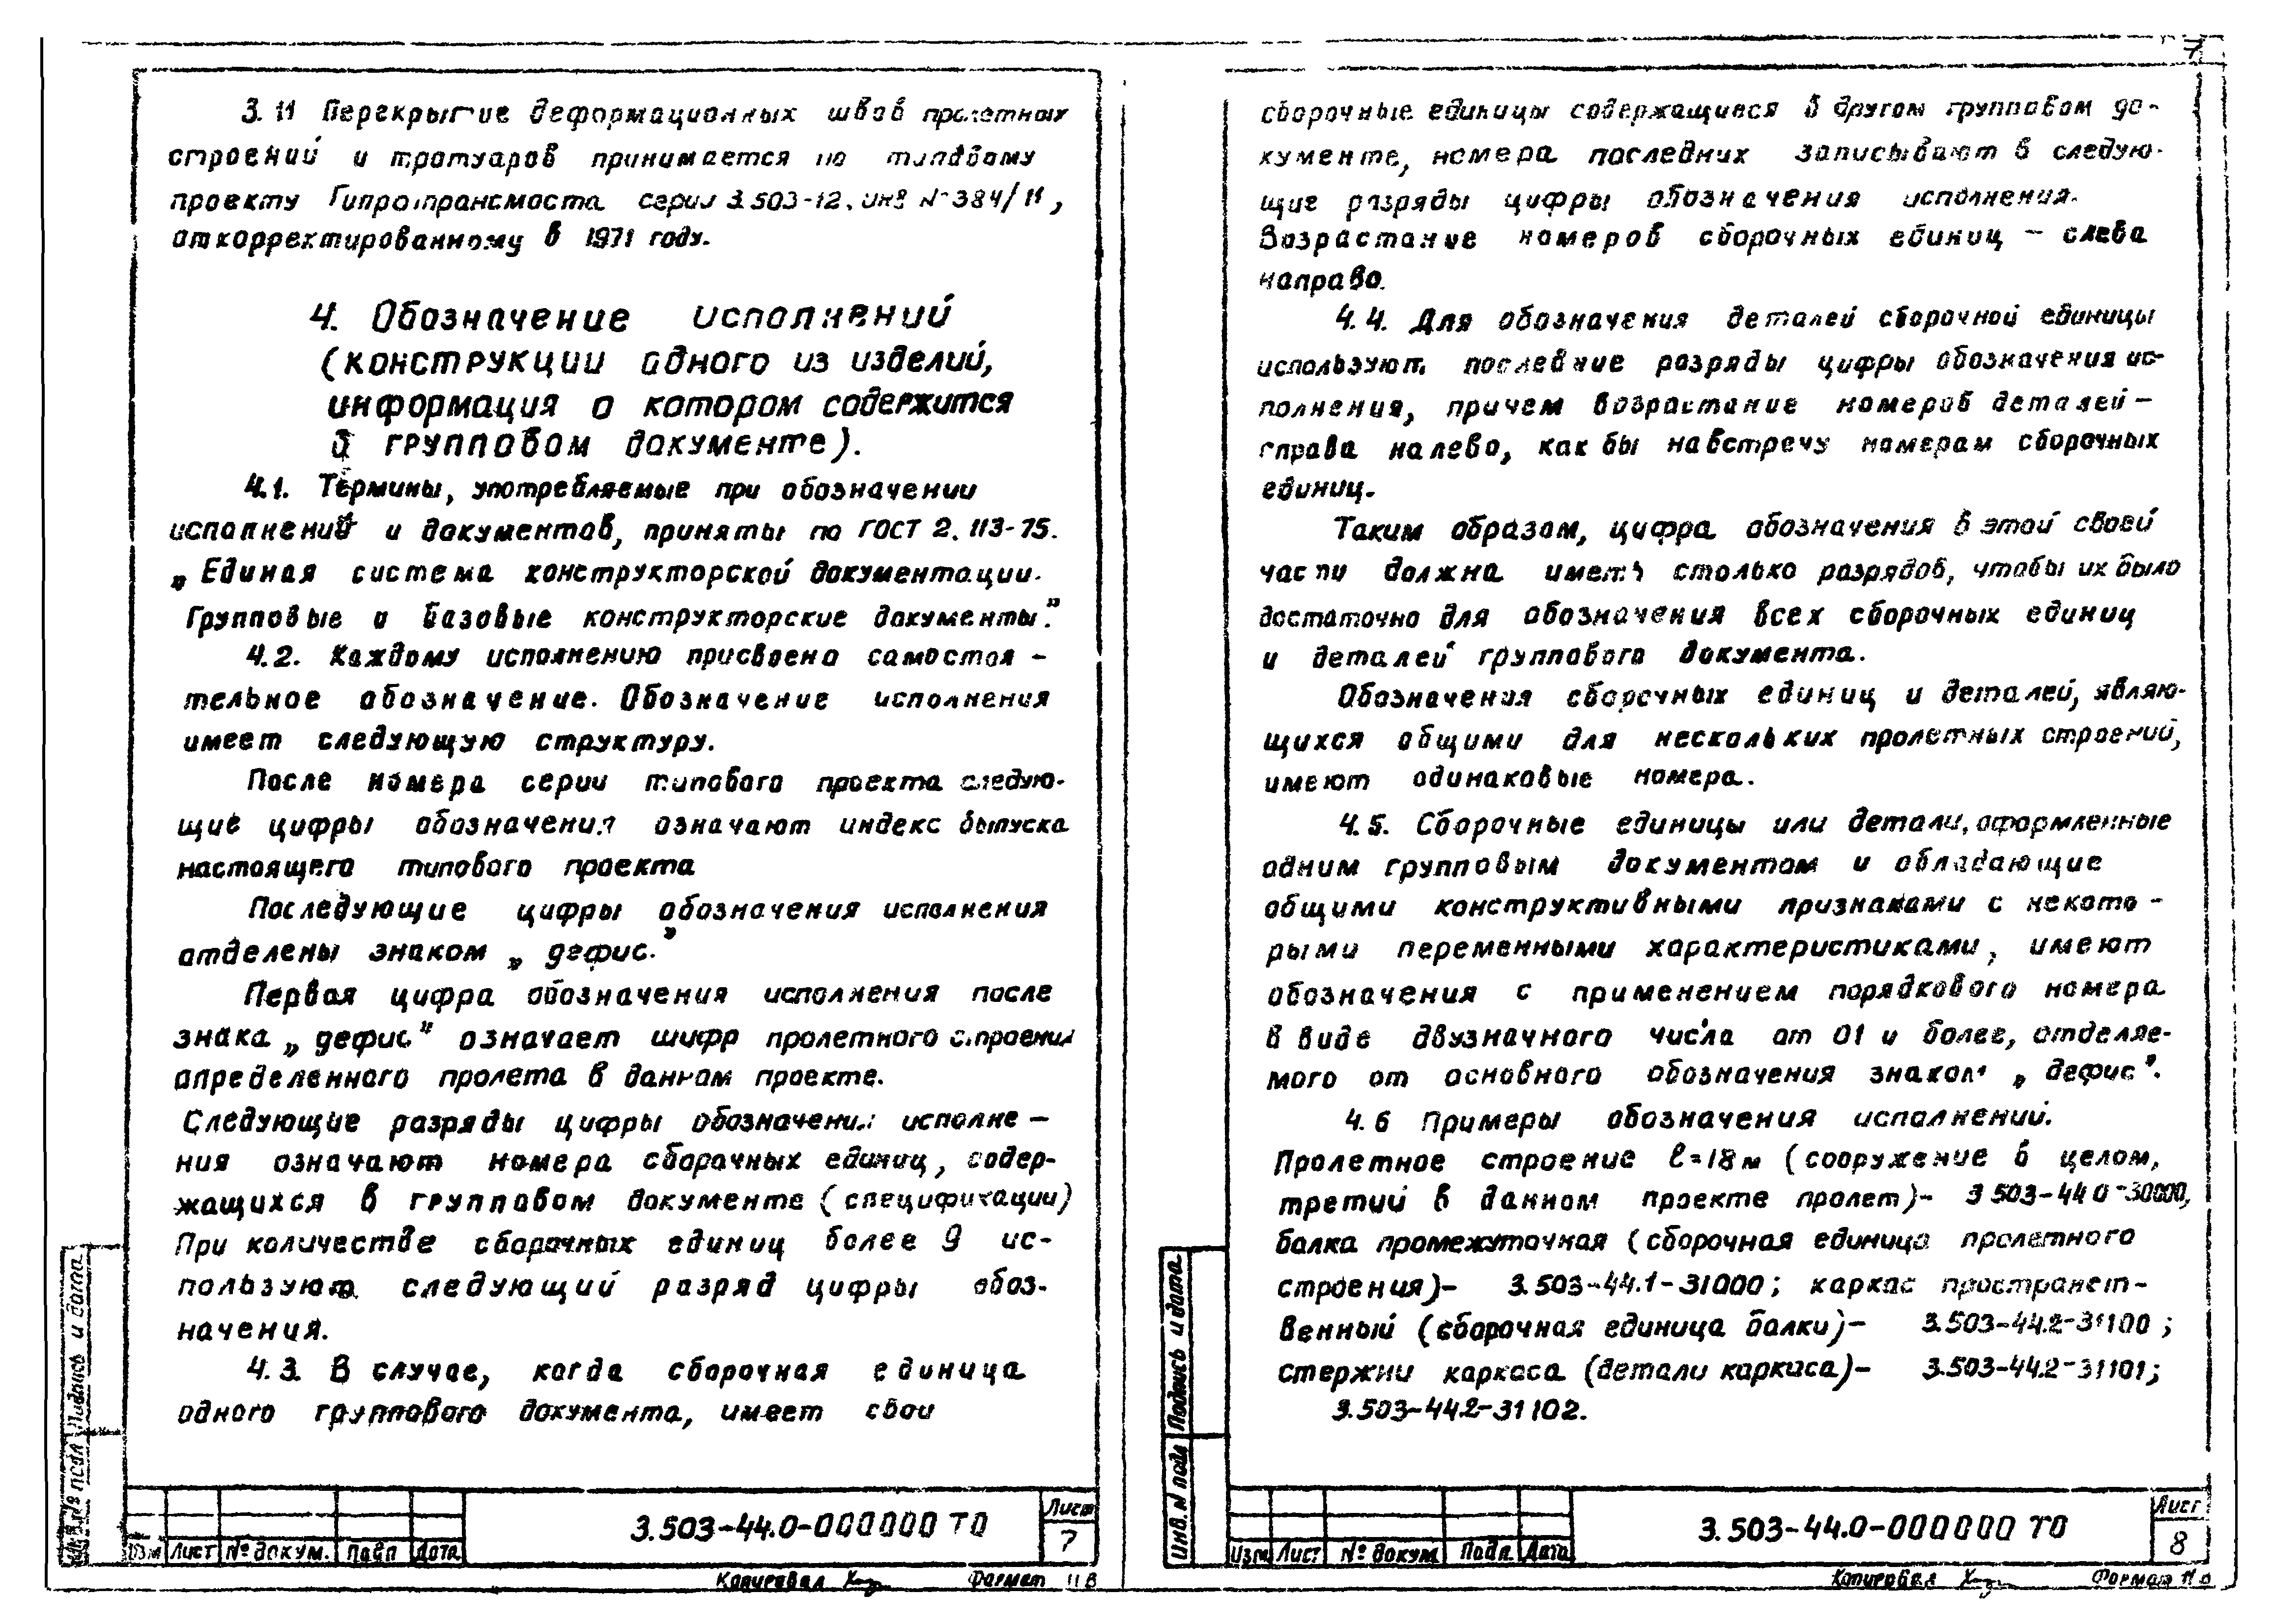 7
3.11 Перекрытие деформационных швов пролетных
строений и тротуаров принимается по типовому
проекту Гипротрансмоста серии 3.503-12, инв № 384/11,
откорректированному в 1971 году.
4. Обозначение исполнений
(конструкции одного из изделий,
информация о котором содержится
в групповом документе).
4.1. Термины, употребляемые при обозначении
исполнений и документов, приняты по ГОСТ 2.113-75.
„Единая система конструкторской документации.
Групповые и базовые конструкторские документы".
4.2. Каждому исполнению присвоено самостоя-
тельное обозначение. Обозначение исполнения
имеет следующую структуру.
После номера серии типового проекта следую-
щие цифры обозначения означают индекс выпуска
настоящего типового проекта
Последующие цифры обозначения исполнения
отделены знаком „дефис".
Первая цифра обозначения исполнения после
знака „дефис" означает шифр пролетного строения
определенного пролета в данном проекте.
Следующие разряды цифры обозначения исполне-
ния означают номера сборочных единиц, содер-
жащихся в групповом документе (спецификации)
При количестве сборочных единиц более 9 ис-
пользуют следующий разряд цифры обоз-
начения.
4.3. В случае, когда сборочная единица
одного группового документа, имеет свои
Инв.№ подл Подпись и дата
Изм Лист № докум. Подп Дата
3.503-44.0-000000 ТО
Лист
7
Копировал
Формат 11В
сборочные единицы содержащиеся в другом групповом до-
кументе, номера последних записывают в следую-
щие разряды цифры обозначения исполнения.
Возрастание номеров сборочных единиц - слева
направо.
4.4. Для обозначения деталей сборочной единицы
используют последние разряды цифры обозначения ис-
полнения, причем возрастание номеров деталей -
справа налево, как бы навстречу номерам сборочных
единиц.
Таким образом, цифра обозначения в этой своей
части должна иметь столько разрядов, чтобы их было
достаточно для обозначения всех сборочных единиц
и деталей группового документа.
Обозначения сборочных единиц и деталей, являю-
щихся общими для нескольких пролетных строений,
имеют одинаковые номера.
4.5. Сборочные единицы или детали, оформленные
одним групповым документом и обладающие
общими конструктивными признаками с некото-
рыми переменными характеристиками, имеют
обозначения с применением порядкового номера
в виде двузначного числа от 01 и более, отделяе-
мого от основного обозначения знаком „дефис".
4.6 Примеры обозначения исполнений.
Пролетное строение ℓ=18м (сооружение в целом,
третий в данном проекте пролет)- 3 503-44 0-30000,
балка промежуточная (сборочная единица пролетного
строения)- 3.503-44.1-31000; каркас пространст-
венный (сборочная единица балки)- 3.503-44.2-31100;
стержни каркаса (детали каркаса)- 3.503-44.2-31101;
3.503-44.2-31102.
Инв. № подл Подпись и дата
Изм Лист № докум Подп. Дата
3.503-44.0-000000 ТО
Лист
8
Копировал
Формат 11